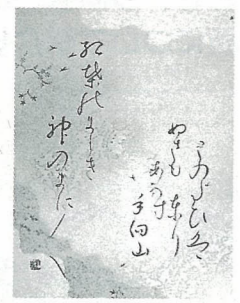 このたびは
ぬさも取り
あへず
手向山
紅葉のにしき
神のまに〱